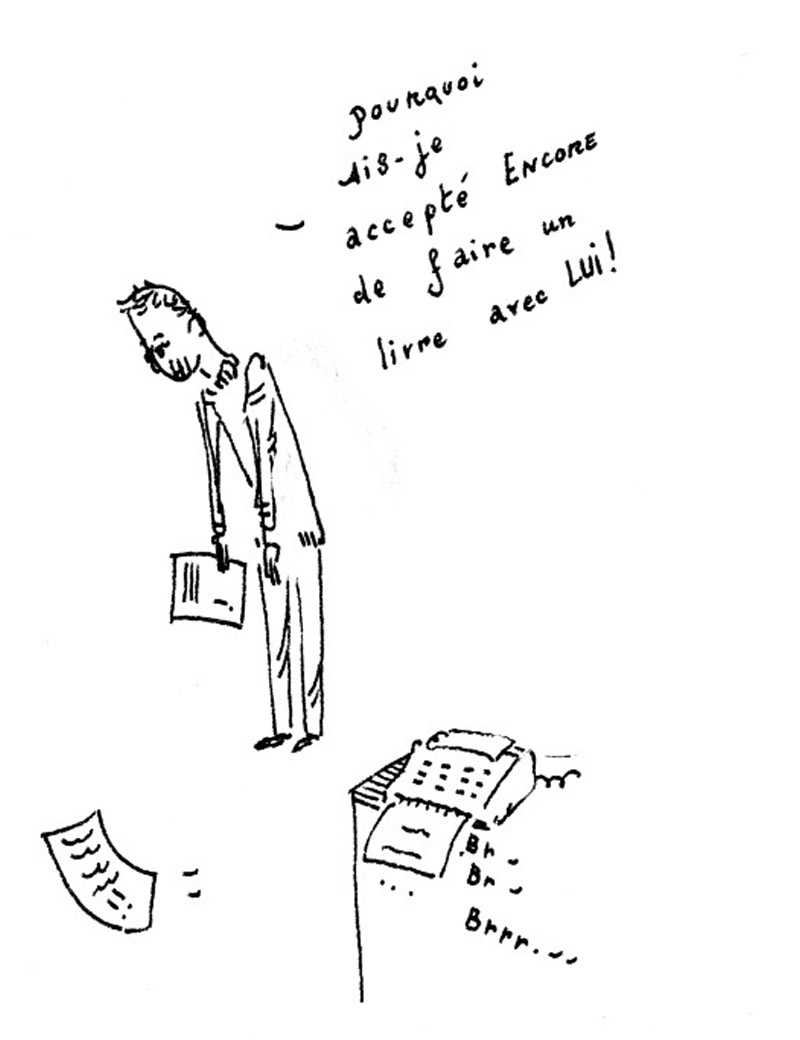 pourquoi
ais-je
accepté ENCORE
de faire un
livre avec LUi!
Br
Br
Brrr...